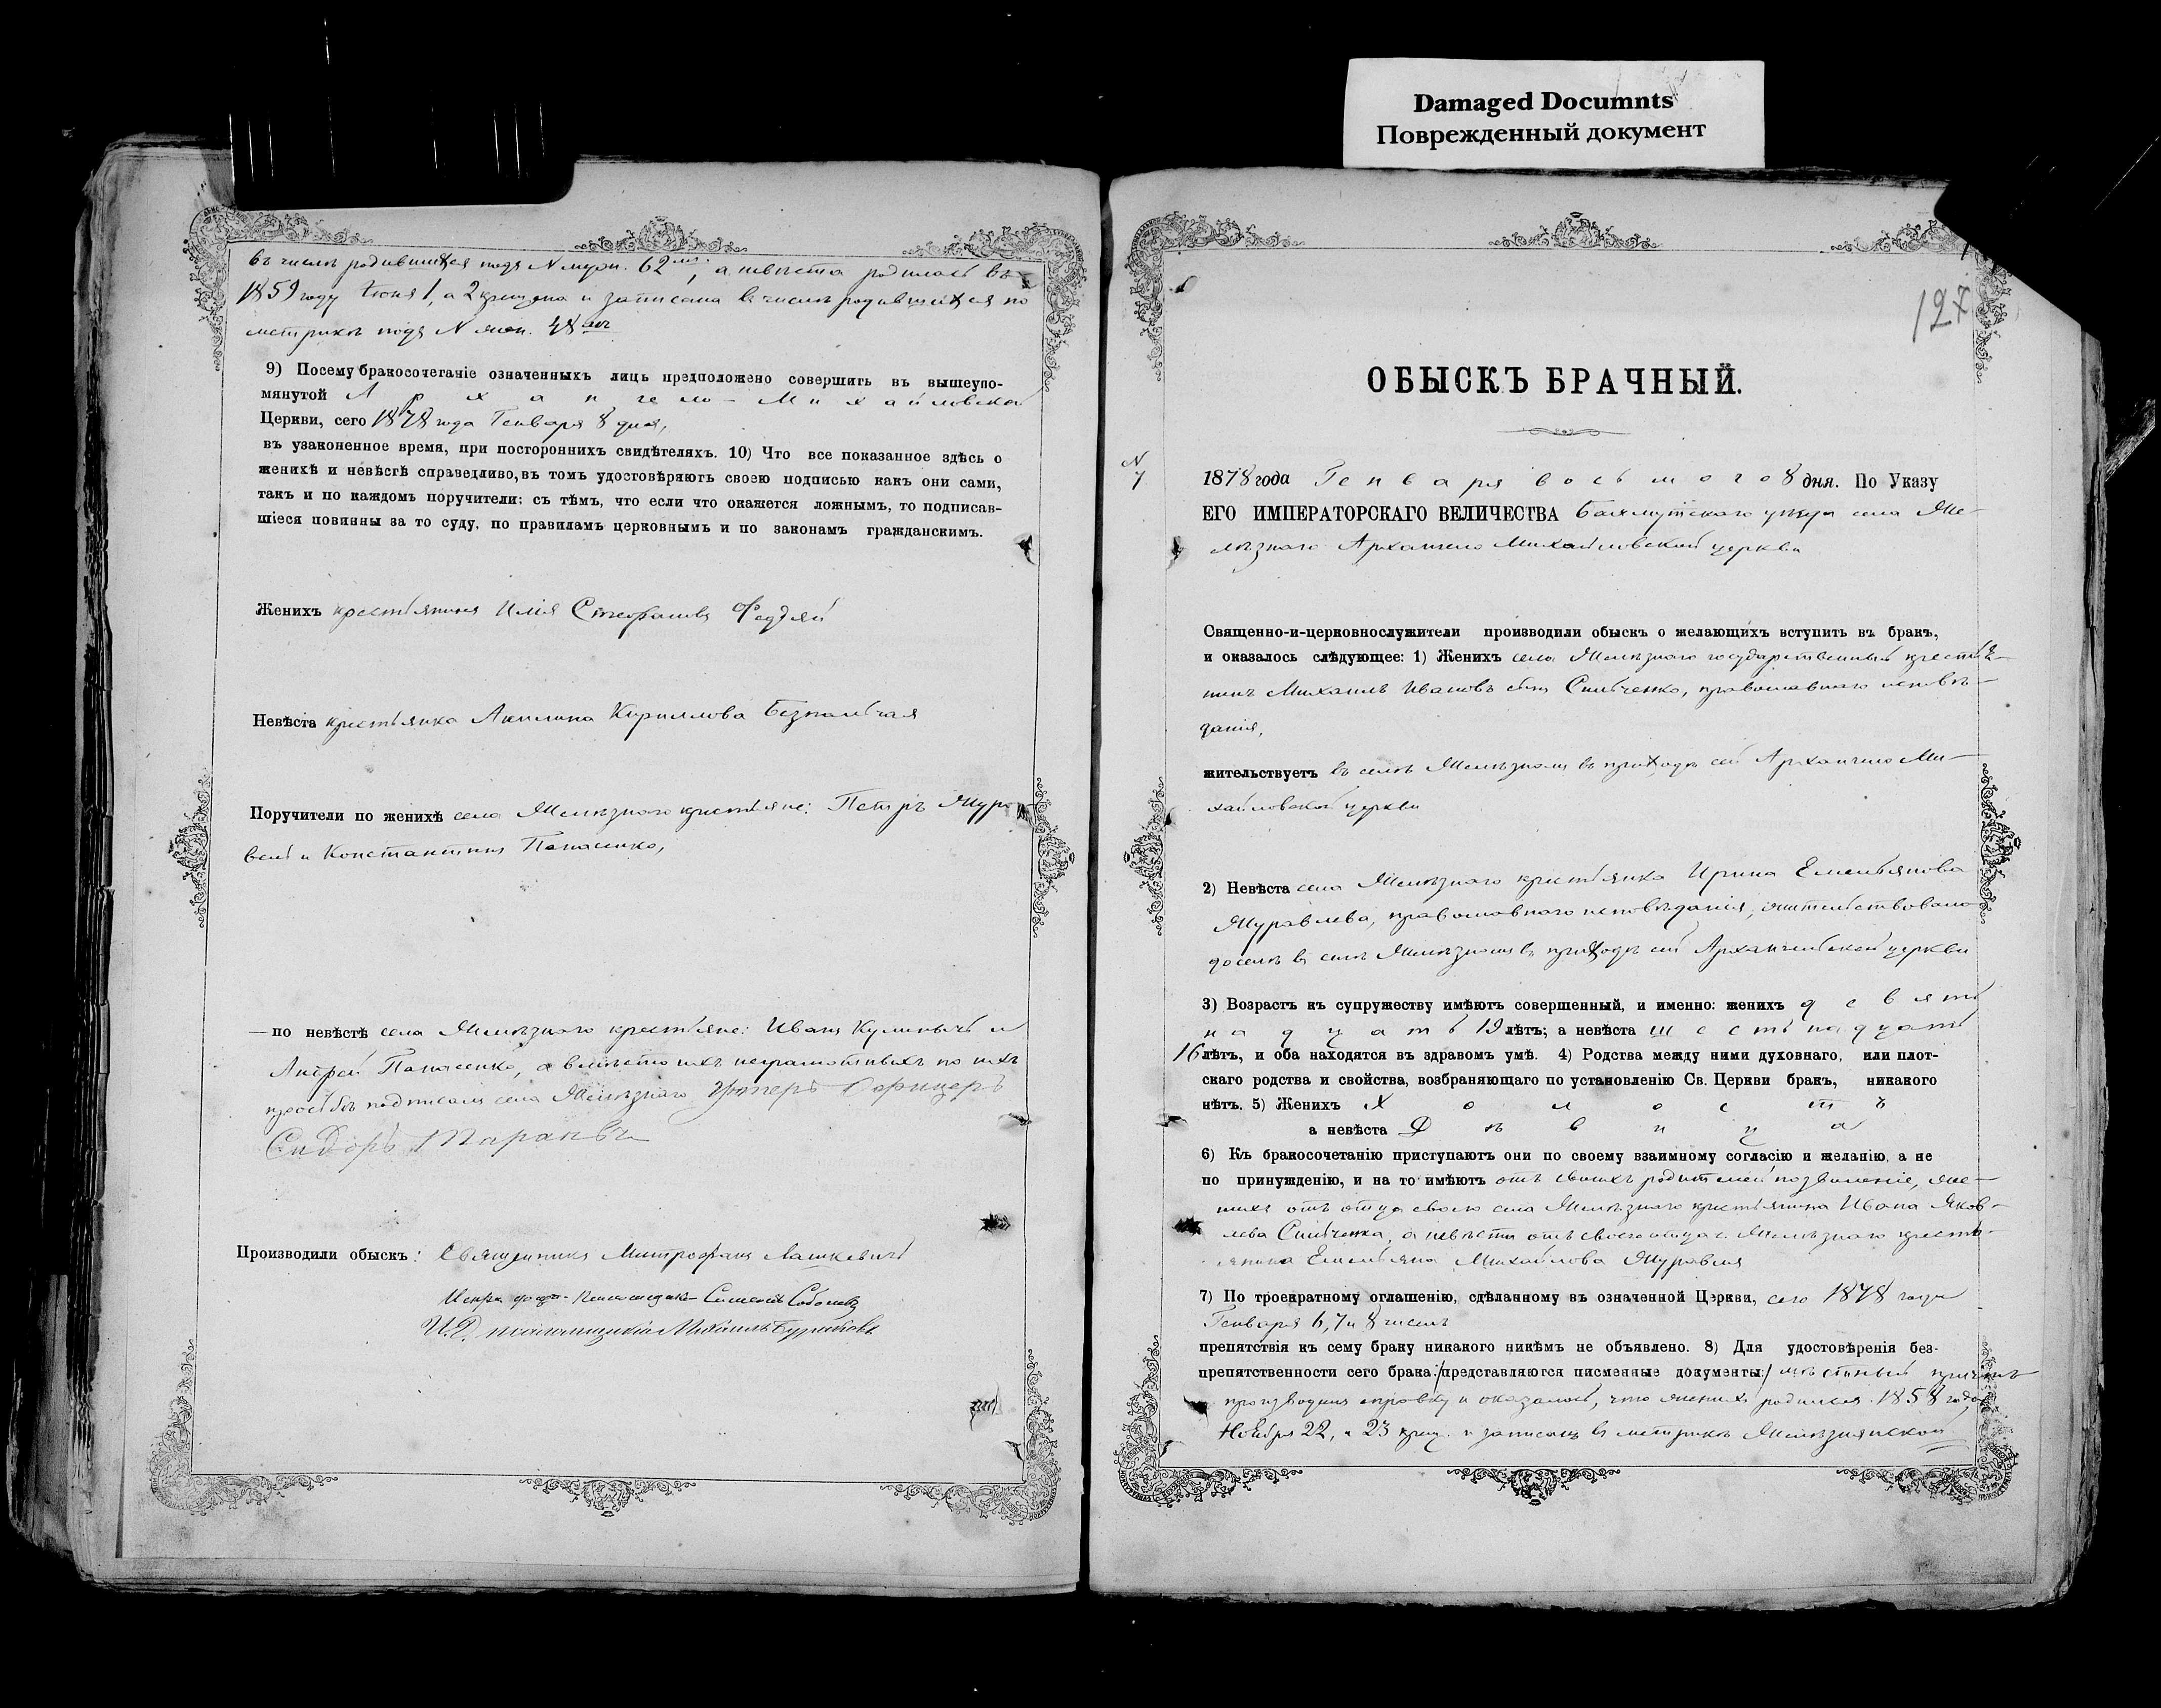 Damaged Documnts
Поврежденный документ
въ числѣ родившихся подъ N муж. 62мъ, а невѣста родилась въ
1859 году Іюня 1, а 2 крещена и записана въ числѣ родившихся по
метрикѣ подъ N жен. 48
9) Посему бракосочетаніе означенныхъ лицъ предположено совершить въ вышеупо-
мянутой Архангело-Михайловской
Церкви, сего 1878 года Генваря 8 дня,
въ узаконенное время, при постороннихъ свидѣтеляхъ. 10) Что все показанное здѣсь о
женихѣ и невѣстѣ справедливо, въ томъ удостовѣряютъ своею подписью какъ они сами,
такъ и по каждомъ поручители; съ тѣмъ, что если что окажется ложнымъ, то подписав-
шіеся повинны за то суду, по правиламъ церковнымъ и по законамъ гражданскимъ.
Женихъ крестьянинъ Илія Стефановъ
Невѣста крестьянка Акилина Кириллова
Поручители по женихѣ села Желѣзнаго крестьяне: Петръ Жура
вель и Константинъ Панасенко,
— по невѣстѣ села Желѣзнаго крестьяне: Иванъ Кулиничъ и
Андрей Панасенко, а вмѣсто ихъ неграмотныхъ по ихъ
просьбѣ подписалъ села Желѣзнаго Унтеръ Офицеръ
Сидоръ
Производили обыскъ: Священникъ Митрофанъ Лашкевичъ
Псаломщикъ
И. Д. псаломщика Михаилъ
127
ОБЫСКЪ БРАЧНЫЙ.
N
7
1878 года Генваря восьмого 8 дня. По Указу
ЕГО ИМПЕРАТОРСКАГО ВЕЛИЧЕСТВА Бахмутскаго уѣзда села Же-
лѣзнаго Архангело Михайловской церкви
Священно-и-церковнослужители производили обыскъ о желающихъ вступить въ бракъ,
и оказалось слѣдующее: 1) Женихъ села Желѣзнаго государственный крестья-
нинъ Михаилъ Ивановъ сынъ Спильченко, православнаго исповѣ-
данія,
жительствуетъ въ селѣ Желѣзномъ въ приходѣ сей Архангело Ми-
хайловской церкви
2) Невѣста села Желѣзнаго крестьянка Ирина Емельянова
Журавлева, православнаго исповѣданія, жительствовала
доселѣ въ селѣ Желѣзномъ въ приходѣ сей Архангельской церкви
3) Возрастъ къ супружеству имѣютъ совершенный, и именно: женихъ девять
надцать 19 лѣтъ; а невѣста шестьнадцать
16 лѣтъ, и оба находятся въ здравомъ умѣ. 4) Родства между ними духовнаго, или плот-
скаго родства и свойства, возбраняющаго по установленію Св. Церкви бракъ, никакого
нѣтъ. 5) Женихъ Холостъ
а невѣста Дѣвица
6) Къ бракосочетанію приступаютъ они по своему взаимному согласію и желанію, а не
по принужденію, и на то имѣютъ отъ своихъ родителей позволеніе, же-
нихъ отъ отца своего села Желѣзнаго крестьянина Ивана Яков-
лева Спильченка, а невѣста отъ своего отца с. Желѣзнаго кресть-
янина Емельяна Михайлова Журавля
7) По троекратному оглашенію, сдѣланному въ означенной Церкви, сего 1878 года
Генваря 6, 7 и 8 числъ
препятствія къ сему браку никакого никѣмъ не объявлено. 8) Для удостовѣренія без-
препятственности сего брака:/представляются писменные документы:/ мѣстный причтъ
производилъ справку и оказалось, что женихъ родился 1858 года
Ноября 22, а 23 крещ. и записанъ въ метрикѣ Желѣзнянской